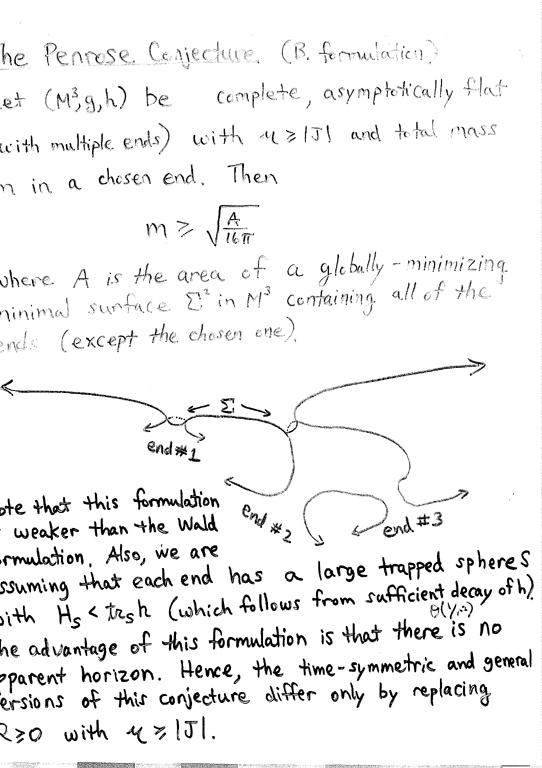 he Penrose Conjecture. (B. formulation)
et (M³,g,h) be complete, asymptotically flat
with multiple ends) with μ ≥ |J| and total mass
m in a chosen end. Then
m ≥ √(A/16π)
where A is the area of a globally-minimizing
minimal surface Σ² in M³ containing all of the
ends (except the chosen one).
← Σ →
end #1
end #2
end #3
ote that this formulation
weaker than the Wald
ormulation. Also, we are
ssuming that each end has a large trapped spheres
with Hs < trsh (which follows from sufficient decay of h).
he advantage of this formulation is that there is no
pparent horizon. Hence, the time-symmetric and general
ersions of this conjecture differ only by replacing
R≥0 with μ ≥ |J|.